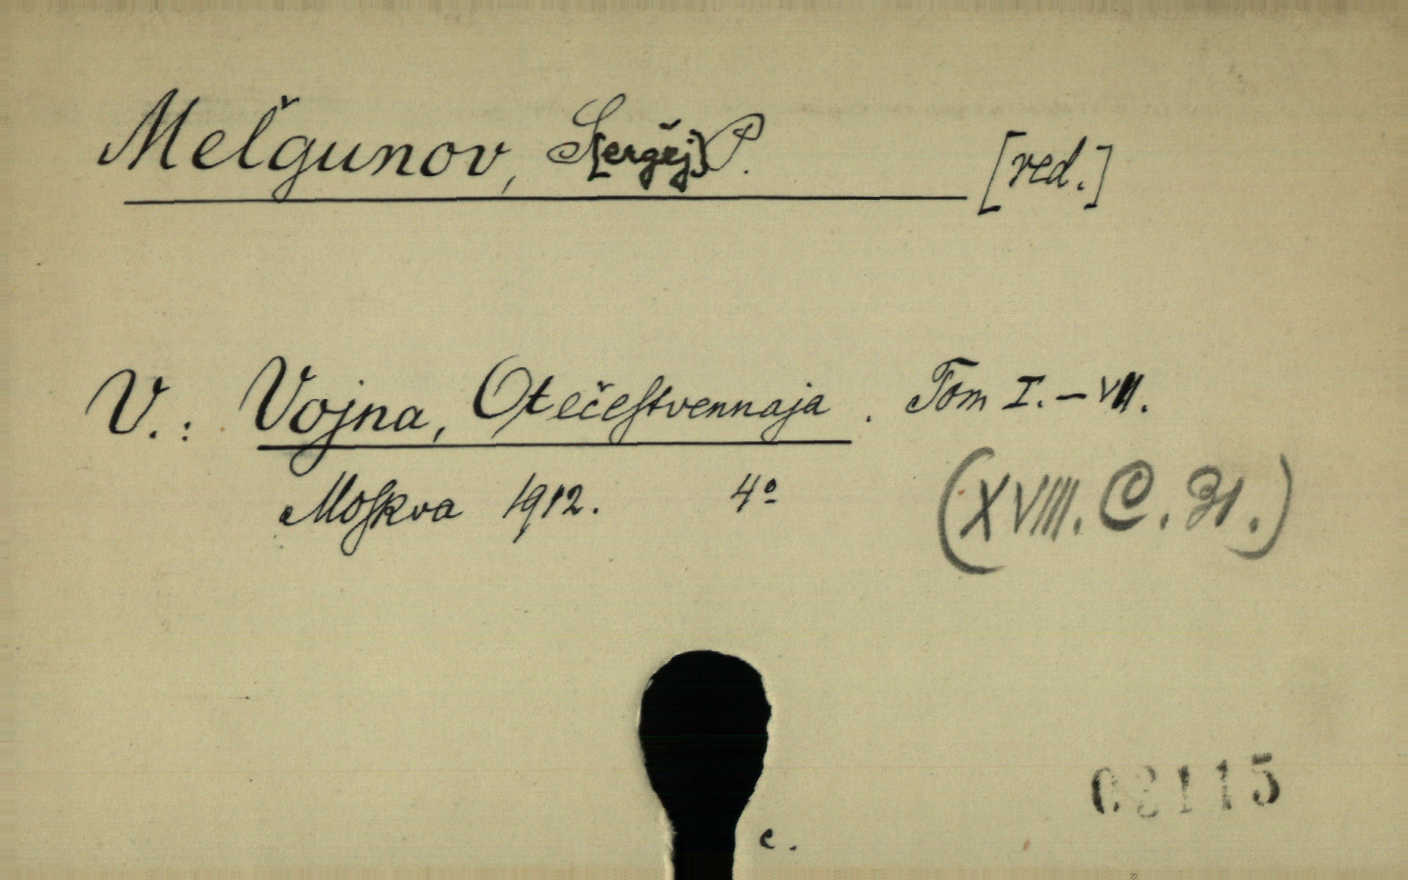 Meľgunov, S[ergěj] P. [red.]
V.: Vojna, Otečestvennaja. Tom I.–VII.
Moskva 1912. 4° (XVIII. C. 31.)
c.
03115